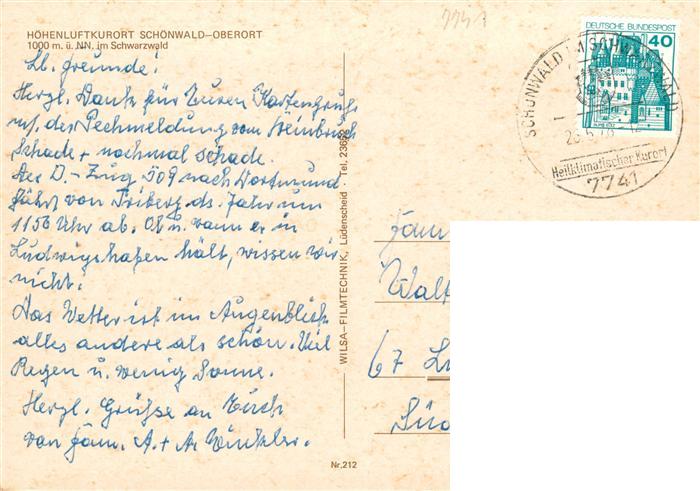 7741
HÖHENLUFTKURORT SCHÖNWALD–OBERORT
1000 m. ü. NN. im Schwarzwald
Lb. Freunde!
Herzl. Dank für Euren Kartengruß
m/. der Pechmeldung vom Steinbruch
Schade + nochmal schade.
Der D.-Zug 509 nach Dortmund
fährt von Triberg ds. Jahr um
1156 Uhr ab. Ob u. wann er in
Ludwigshafen hält, wissen wir
nicht.
Das Wetter ist im Augenblick
alles andere als schön. Viel
Regen u. wenig Sonne.
Herzl. Grüße an Euch
von Fam. A. + A. Winkler.
WILSA–FILMTECHNIK, Lüdenscheid · Tel. 23692
Nr. 212
DEUTSCHE BUNDESPOST
40
SCHÖNWALD IM SCHWARZWALD
Heilklimatischer Kurort
7741
Fam
Walt
67 Lu
Süd